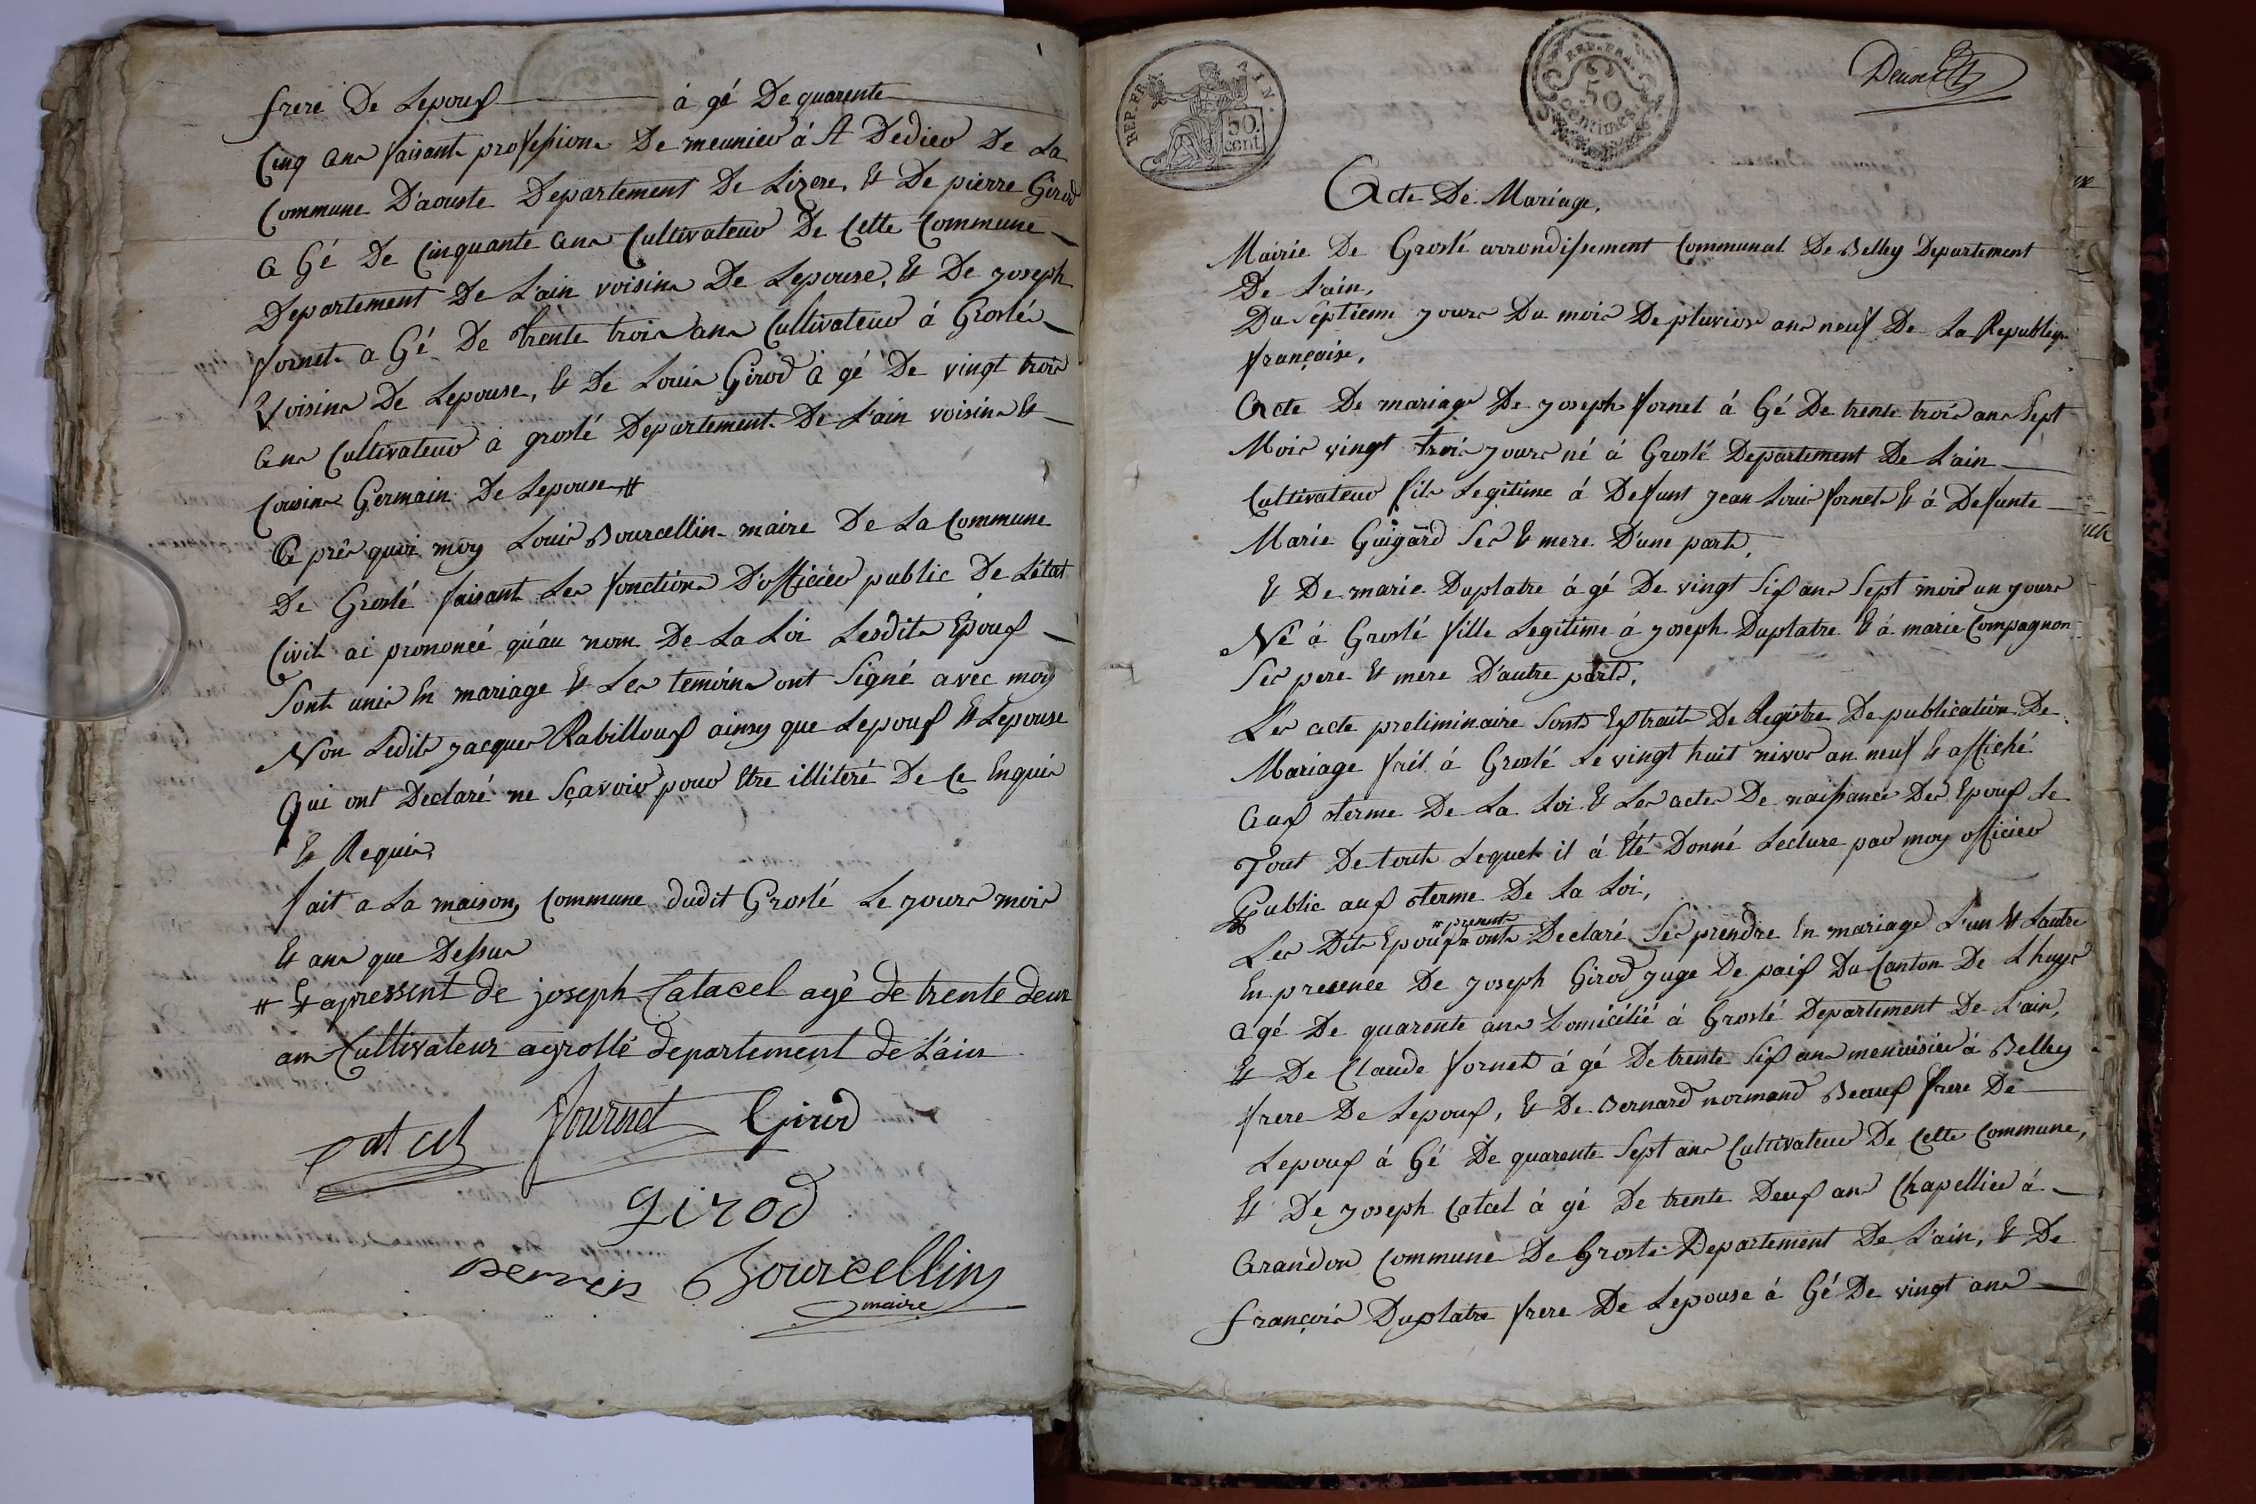 frere De Lepoux à gé De quarente
Cinq ans faisant profession De meunier á St Dedier De La
Commune D'aouste Departement De Lizere, & De pierre Girod
a Gé De Cinquante ans Cultivateur De Cette Commune
Departement De L'ain voisin De Lepouse, & De joseph
fornet a Gé De trente trois ans Cultivateur á Groslé
Voisin De Lepouse, & De Louis Girod á gé De vingt trois
ans Cultivateur á groslé Departement De L'ain voisin &
Cousin Germain De Lepouse #
Après quoi moy Louis Bourcellin maire De La Commune
De Groslé faisant Les fonctions D'officier public De Létat
Civil ai prononcé qu'au nom De La Loi Lesdits Epoux
Sont unis En mariage & Les temoins ont Signé avec moy
Non Ledit jacques Rabilloux ainsy que Lepoux & Lepouse
Qui ont Declaré ne Sçavoir pour Etre illiteré De Ce Enquis
& Requis,
fait a La maison Commune dudit Groslé Le jours mois
& ans que Dessus
# & apressent de joseph Catacel agé de trente deux
ans Cultivateur agrollé departement de L'ain
Catcel fournet Girod
girod
perrin Bourcellin
maire
REP. FRA
50
cent
REP. FRA.
50
Centimes
Deuxieme
Acte De Mariage,
Mairie De Groslé arrondissement Communal De Belley Departement
De L'ain,
Du Septiem jours Du mois De pluviose ans neuf De La Republique
française,
Acte De mariage De joseph fornet á Gé De trente trois ans Sept
Mois vingt trois jours né á Groslé Departement De L'ain
Cultivateur fils Legitime á Defunt jean Louis fornet & á Defunte
Marie Guigard Ses & mere D'une part,
& De marie Duplatre á gé De vingt Six ans Sept mois un jours
Né á Groslé fille Legitime á joseph Duplatre & á marie Compagnon
Ses pere & mere D'autre part,
Les acte preliminaire Sont Extrait De Registre De publication De
Mariage fait á Groslé Le vingt huit nivos an neuf & affiché
aux terme De La Loi & Les actes De naissance Des Epoux Le
Tout De tout Lequel il á Eté Donné Lecture par moy officier
Public aux terme De La Loi,
# presents
Les Dits Epoux # ont Declaré Ses prendre En mariage L'un & Lautre
En presence De joseph Girod juge De paix Du Canton De Lhuys
agé De quarente ans Domicilié á Groslé Departement De L'ain,
& De Claude fornet á gé De trente Six ans menuisier á Belley
frere De Lepoux, & De Bernard normand Beaux frere De
Lepoux á Gé De quarente Sept ans Cultivateur De Cette Commune,
& De joseph Catcel á gé De trente Deux ans Chapellier á
Arandon Commune De Grosle Departement De L'ain, & De
françois Duplatre frere De Lepouse á Gé De vingt ans